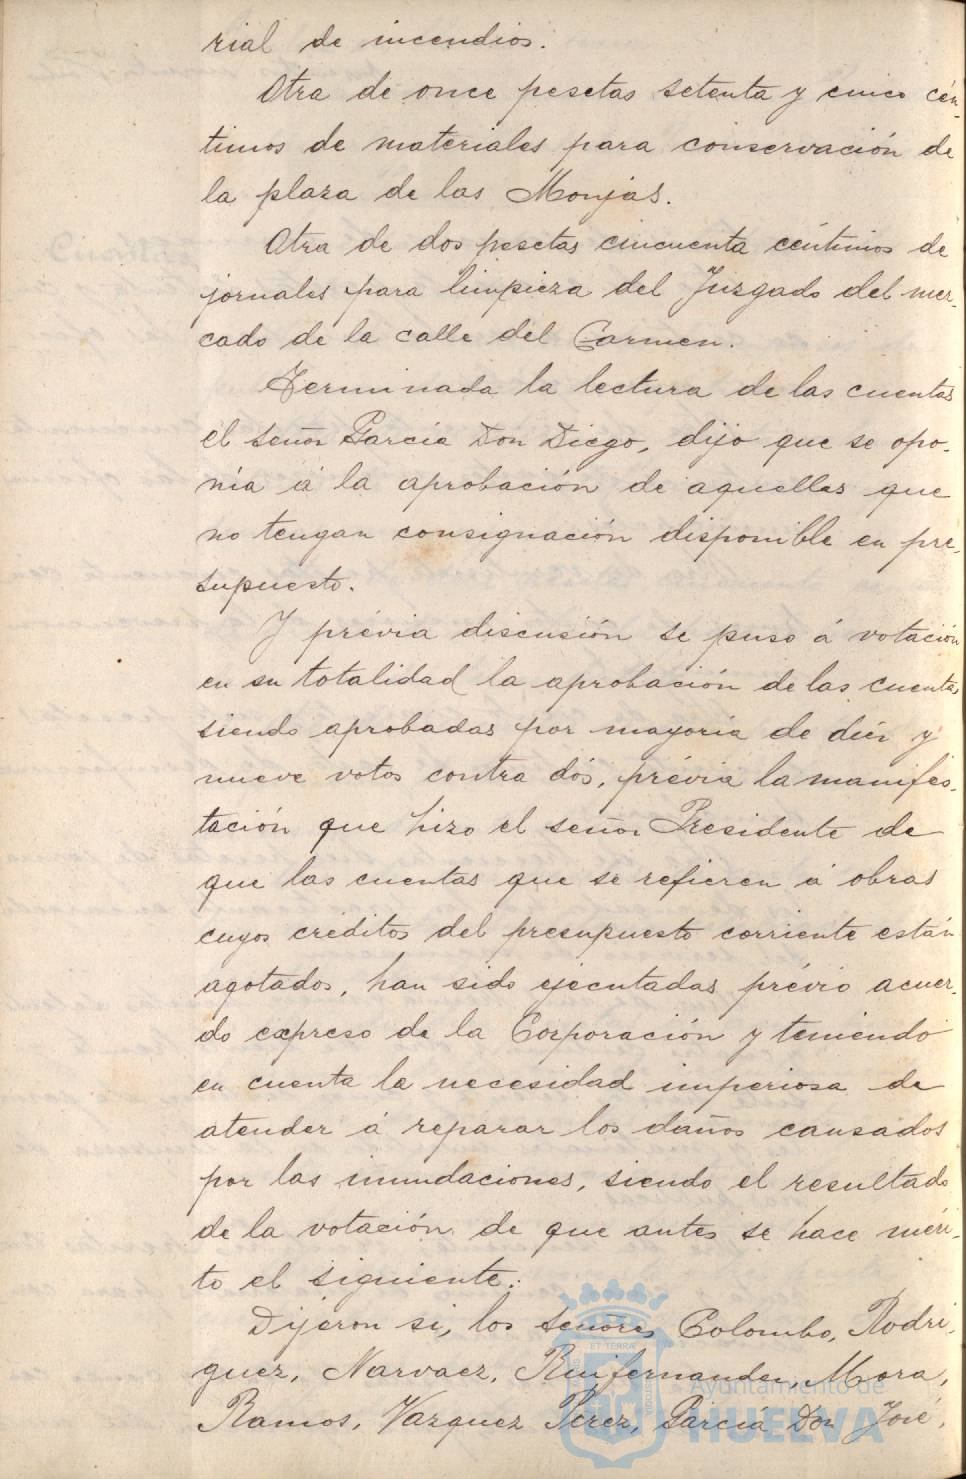 rial de incendios.
Otra de once pesetas setenta y cinco cén-
timos de materiales para conservación de
la plaza de las Monjas.
Otra de dos pesetas cincuenta céntimos de
jornales para limpieza del Juzgado del mer-
cado de la calle del Carmen.
Terminada la lectura de las cuentas
el señor García Don Diego, dijo que se opo-
nía á la aprobación de aquellas que
no tengan consignación disponible en pre-
supuesto.
Y prévia discusión se puso á votación
en su totalidad la aprobación de las cuentas
siendo aprobadas por mayoría de diez y
nueve votos contra dós, prévia la manifes-
tación que hizo el señor Presidente de
que las cuentas que se refieren á obras
cuyos créditos del presupuesto corriente están
agotados, han sido ejecutadas prévio acuer-
do expreso de la Corporación y teniendo
en cuenta la necesidad imperiosa de
atender á reparar los daños causados
por las inundaciones, siendo el resultado
de la votación de que antes se hace méri-
to el siguiente:
Dijeron si, los señores Colombo, Rodri-
guez, Narvaez, Ruifernandez, Mora,
Ramos, Vazquez Perez, García Don José,
ET TERRA
Ayuntamiento de
HUELVA